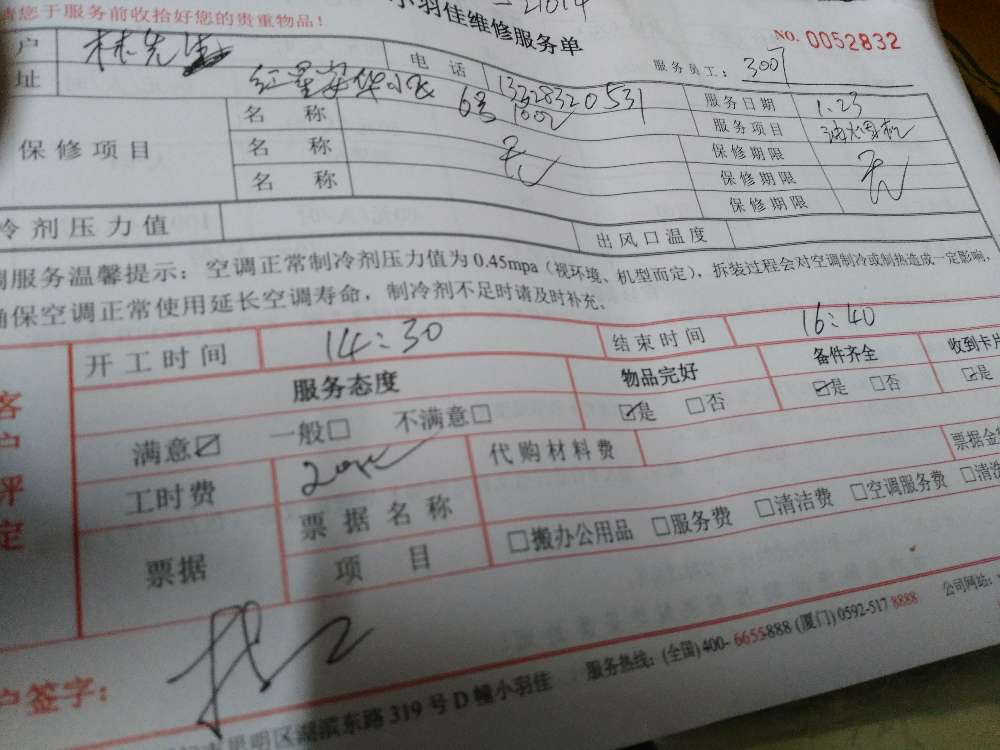 请您于服务前收拾好您的贵重物品！
小羽佳维修服务单
NO. 0052832
服务员工： 3007
户 林先生 电话 13328320531 服务日期 1.23
址 红星 小区 6号 1002 服务项目 油烟机
保修项目 名称 无 保修期限 无
名称 保修期限
名称 保修期限
冷剂压力值 出风口温度
调服务温馨提示：空调正常制冷剂压力值为0.45mpa（视环境、机型而定），拆装过程会对空调制冷或制热造成一定影响，
确保空调正常使用延长空调寿命，制冷剂不足时请及时补充。
客户评定
开工时间 14:30 结束时间 16:40
服务态度 物品完好 备件齐全 收到卡片
满意☑ 一般□ 不满意□ ☑是 □否 ☑是 □否 ☑是
工时费 代购材料费 票据金
票据 票据名称 □搬办公用品 □服务费 □清洁费 □空调服务费 □清洗
项目
户签字：
明区湖滨东路 319 号 D 幢小羽佳 服务热线：(全国) 400-6655888 (厦门) 0592-517 8888 公司网站：